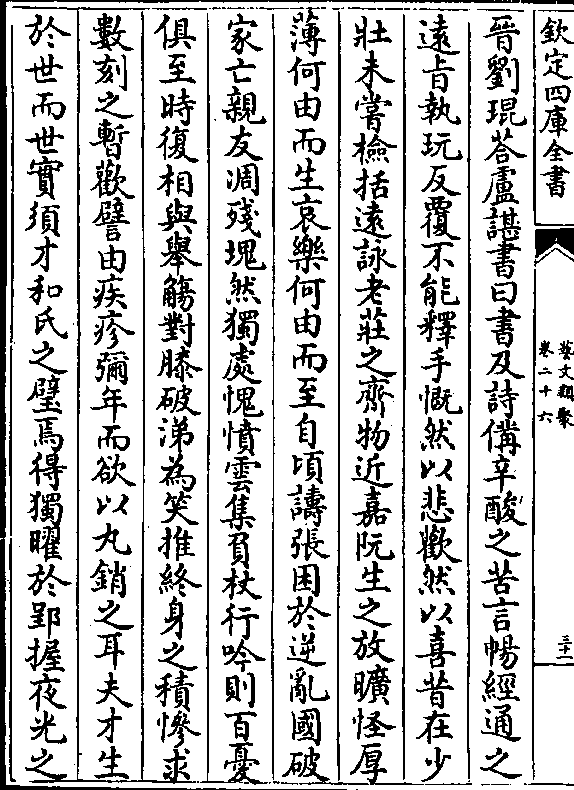 欽定四庫全書
藝文類聚
卷二十六
三十一
晉劉琨荅盧諶書曰書及詩備辛酸之苦言暢經通之
遠旨執玩反覆不能釋手慨然以悲歡然以喜昔在少
壯未嘗檢括遠詠老莊之齊物近嘉阮生之放曠怪厚
薄何由而生哀樂何由而至自頃譸張困於逆亂國破
家亡親友凋殘塊然獨處愧憤雲集負杖行吟則百憂
俱至時復相與舉觴對膝破涕為笑推終身之積慘求
數刻之暫歡譬由疾疹彌年而欲以丸銷之耳夫才生
於世而世實須才和氏之璧焉得獨曜於郢握夜光之